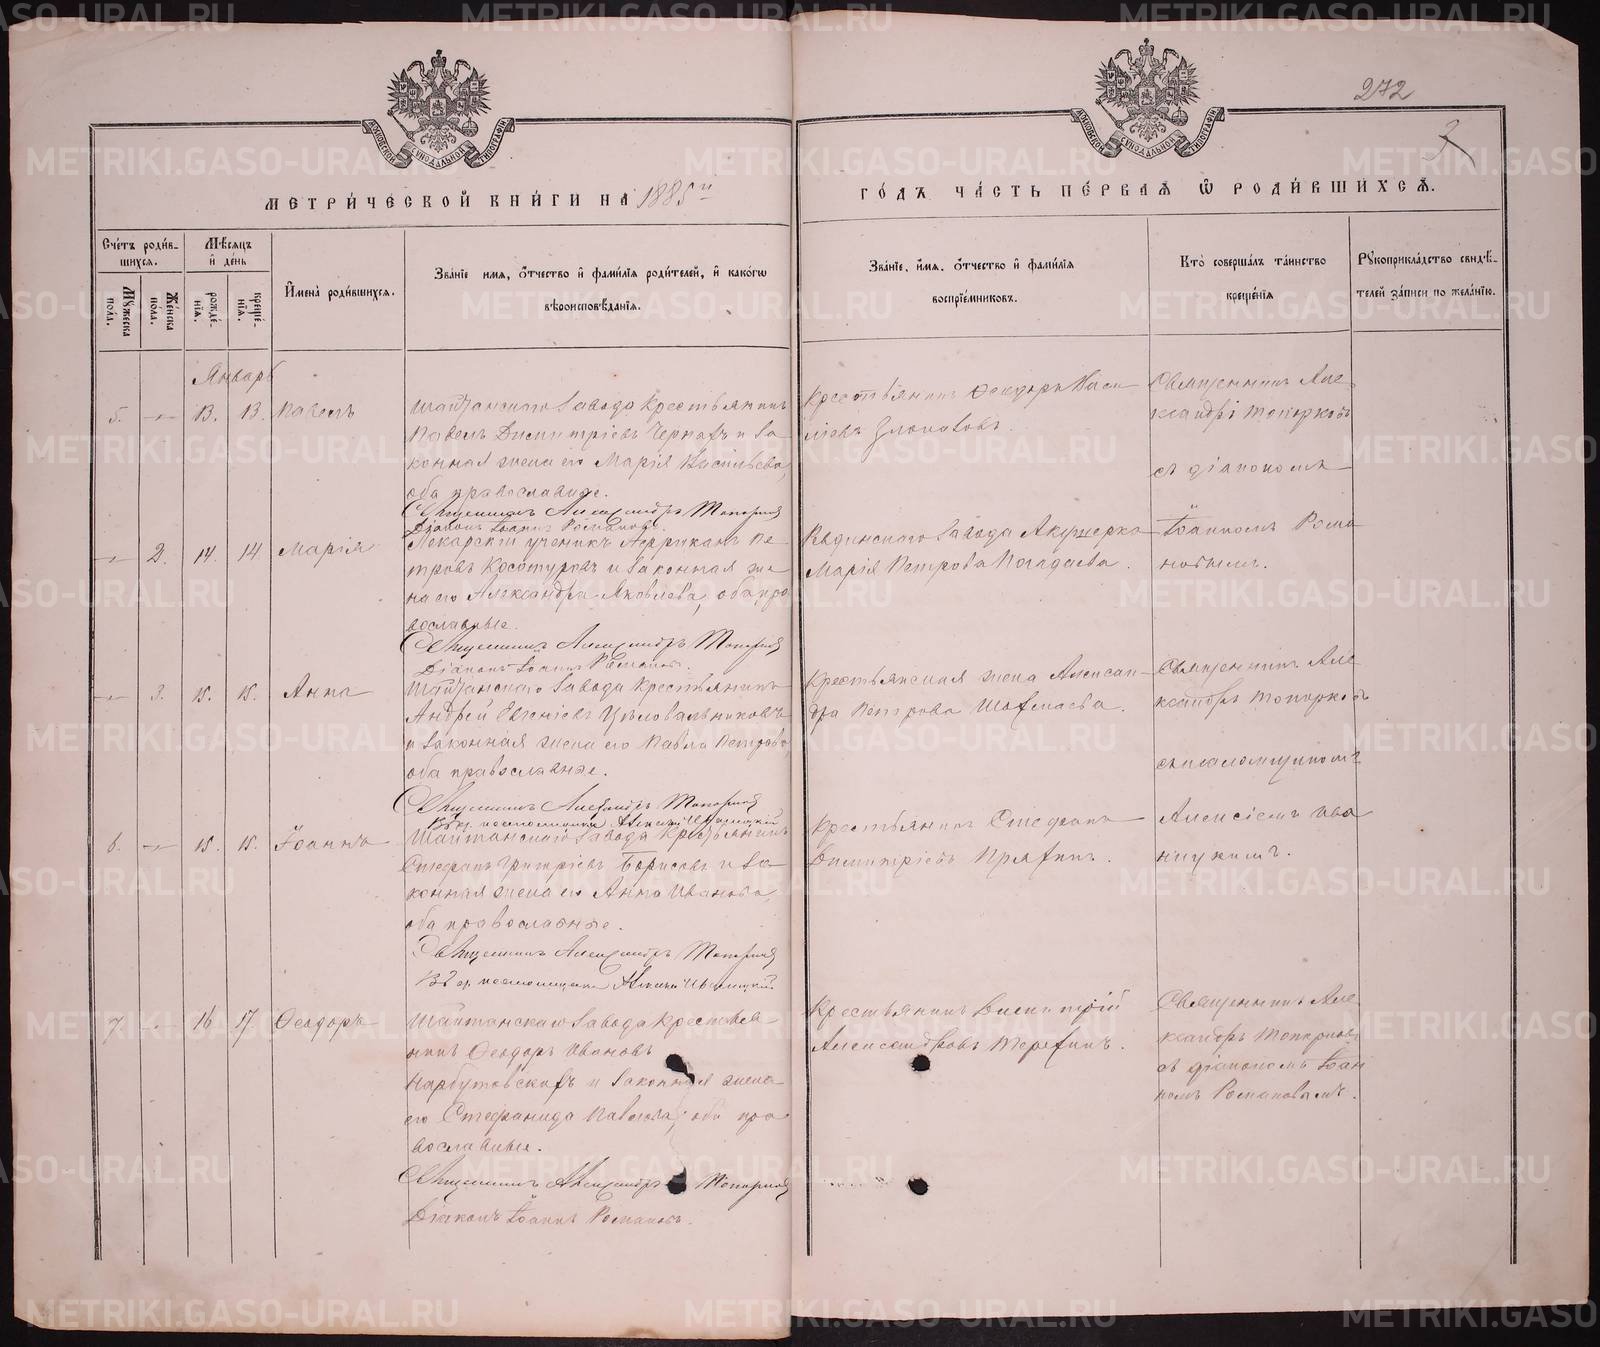 272
3
МЕТРИ́ЧЕСКОЙ КНИ́ГИ НА 1885 й
ГО́ДЪ ЧА́СТЬ ПЕ́РВАѦ Ѿ РОДИ́ВШИХСѦ.
Сче́тъ роди́в-
шихся.
Мꙋжеска
по́ла.
Же́нска
по́ла.
Мѣ́сяцъ
и де́нь
рожде́-
нїя.
креще́-
нїя.
И́мена̀ роди́вшихся.
Зва́нїе имя, о́тчество и фами́лїя роди́телей, и како́гѡ
вѣроисповѣ́данїя.
Зва́нїе, и́мя, о́тчество и фами́лїя
воспрїе́мниковъ.
Кто̀ соверша́лъ та́инство
креще́нїя
Рꙋкоприкла́дство свидѣ́-
телей за́писи по жела́нїю.
Январь
5. — 13. 13. Павелъ
Шайтанскаго завода крестьянинъ
Павелъ Димитріевъ и за-
конная жена его Марія Васильева,
оба православные.
Священникъ Александръ Топорков
Діаконъ Іоаннъ Романовъ.
Крестьянинъ Ѳеодоръ
Священникъ Але-
ксандръ Топорковъ
съ діакономъ
— 2. 14. 14 Марія
Лекарскій ученикъ Пе-
тровъ Косотуровъ и законная же-
на его Александра Яковлева, оба пра
вославные.
Священникъ Александръ Топорков
Діаконъ Іоаннъ Романовъ.
завода Акушерка
Марія Петрова
Іоанномъ Рома
новымъ.
— 3. 15. 15. Анна
Шайтанскаго завода крестьянинъ
Андрей Евгеніевъ Цѣловальниковъ
и законная жена его Павла Петрова,
оба православные.
Священникъ Александръ Топорков
Крестьянская жена Алексан-
дра Петрова
Священникъ Але-
ксандръ Топорковъ
съ псаломщикомъ
6. — 15. 15. Іоаннъ
Шайтанскаго завода крестьянинъ
Стефанъ Борисовъ и за-
конная жена его Анна Иванова,
оба православные.
Священникъ Александръ Топорков
Крестьянинъ Стефанъ
Димитріевъ Пряхинъ.
Алексіемъ Ива
ницкимъ.
7. — 16 17. Ѳеодоръ
Шайтанскаго завода крестья-
нинъ Ѳеодоръ Ивановъ
Нарбутовскихъ и законная жена
его Стефанида Павлова, оба пра
вославные.
Священникъ Александръ Топорков
Діаконъ Іоаннъ Романовъ.
Крестьянинъ Димитрій
Александровъ Терехинъ.
Священникъ Але-
ксандръ Топорковъ
съ діакономъ Іоан
номъ Романовымъ.